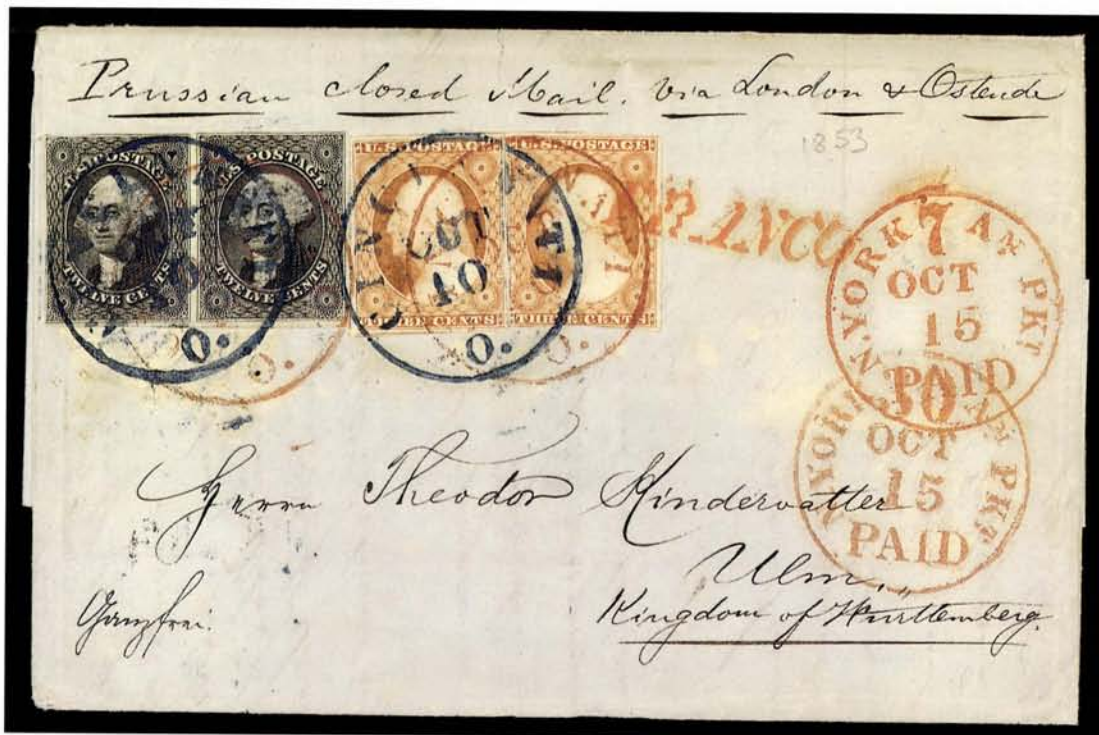 Prussian closed Mail. via London & Ostende
1853
U.S. POSTAGE
TWELVE CENTS
U.S. POSTAGE
TWELVE CENTS
U.S. POSTAGE
THREE CENTS
U.S. POSTAGE
THREE CENTS
CINCINNATI
OCT
10
O.
O.
O.
O.
FRANCO
N. YORK AM PKT
7
OCT
15
PAID
N. YORK AM PKT
30
OCT
15
PAID
Herrn Theodor Kindervatter
Ulm,
Kingdom of Württemberg.
Ganzfrei.